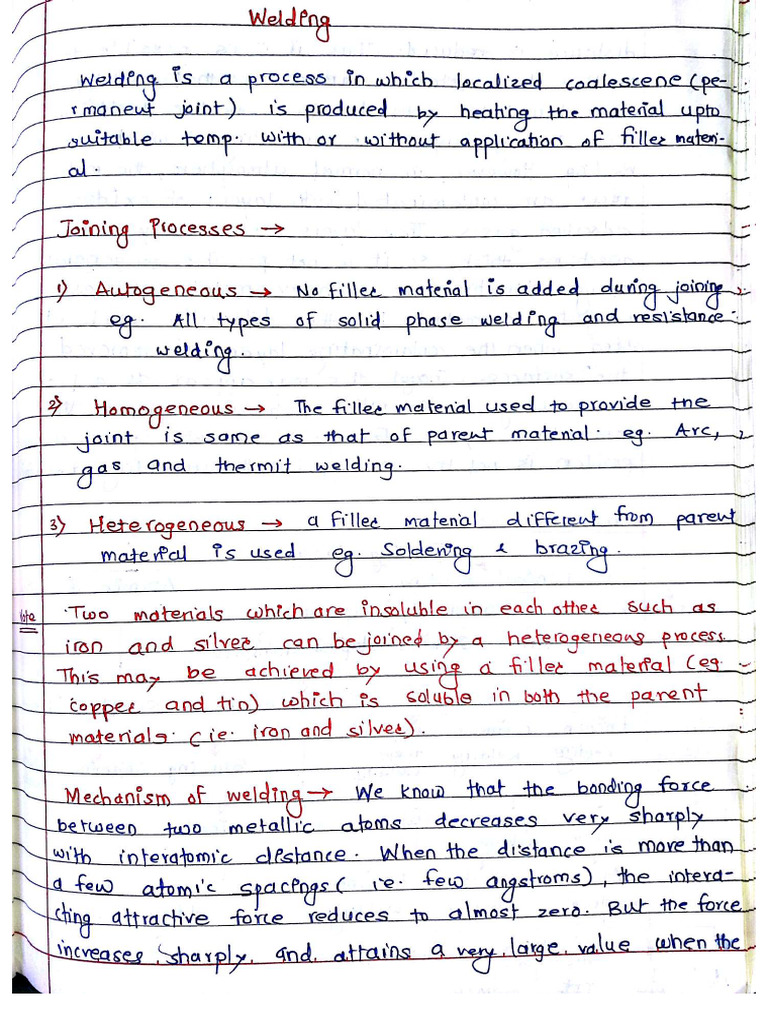 Welding
Welding is a process in which localized coalescene (pe-
rmaneut joint) is produced by heating the material upto
suitable temp. with or without application of filler materi-
al.
Joining Processes →
1) Autogeneous → No filler material is added during joining
eg. All types of solid phase welding and resistance
welding.
2) Homogeneous → The filler material used to provide the
joint is same as that of parent material. eg. Arc,
gas and thermit welding.
3) Heterogeneous → a filler material different from parent
material is used eg. Soldening & brazing.
Note Two materials which are insoluble in each other such as
iron and silver can be joined by a heterogeneous process.
This may be achieved by using a filler material (eg.
copper and tin) which is soluble in both the parent
materials. (ie. iron and silver).
Mechanism of welding → We know that the bonding force
between two metallic atoms decreases very sharply
with interatomic distance. When the distance is more than
a few atomic spacings (ie. few angstroms), the intera-
cting attractive force reduces to almost zero. But the force
increases sharply and attains a very large value when the